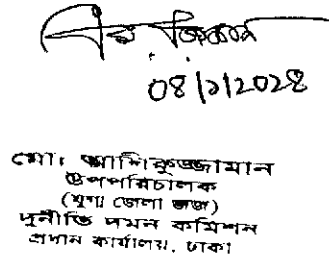 ০৪/১/২০২৪
মোঃ আশিকুজ্জামান
উপপরিচালক
(যুগ্ম জেলা জজ)
দুর্নীতি দমন কমিশন
প্রধান কার্যালয়, ঢাকা